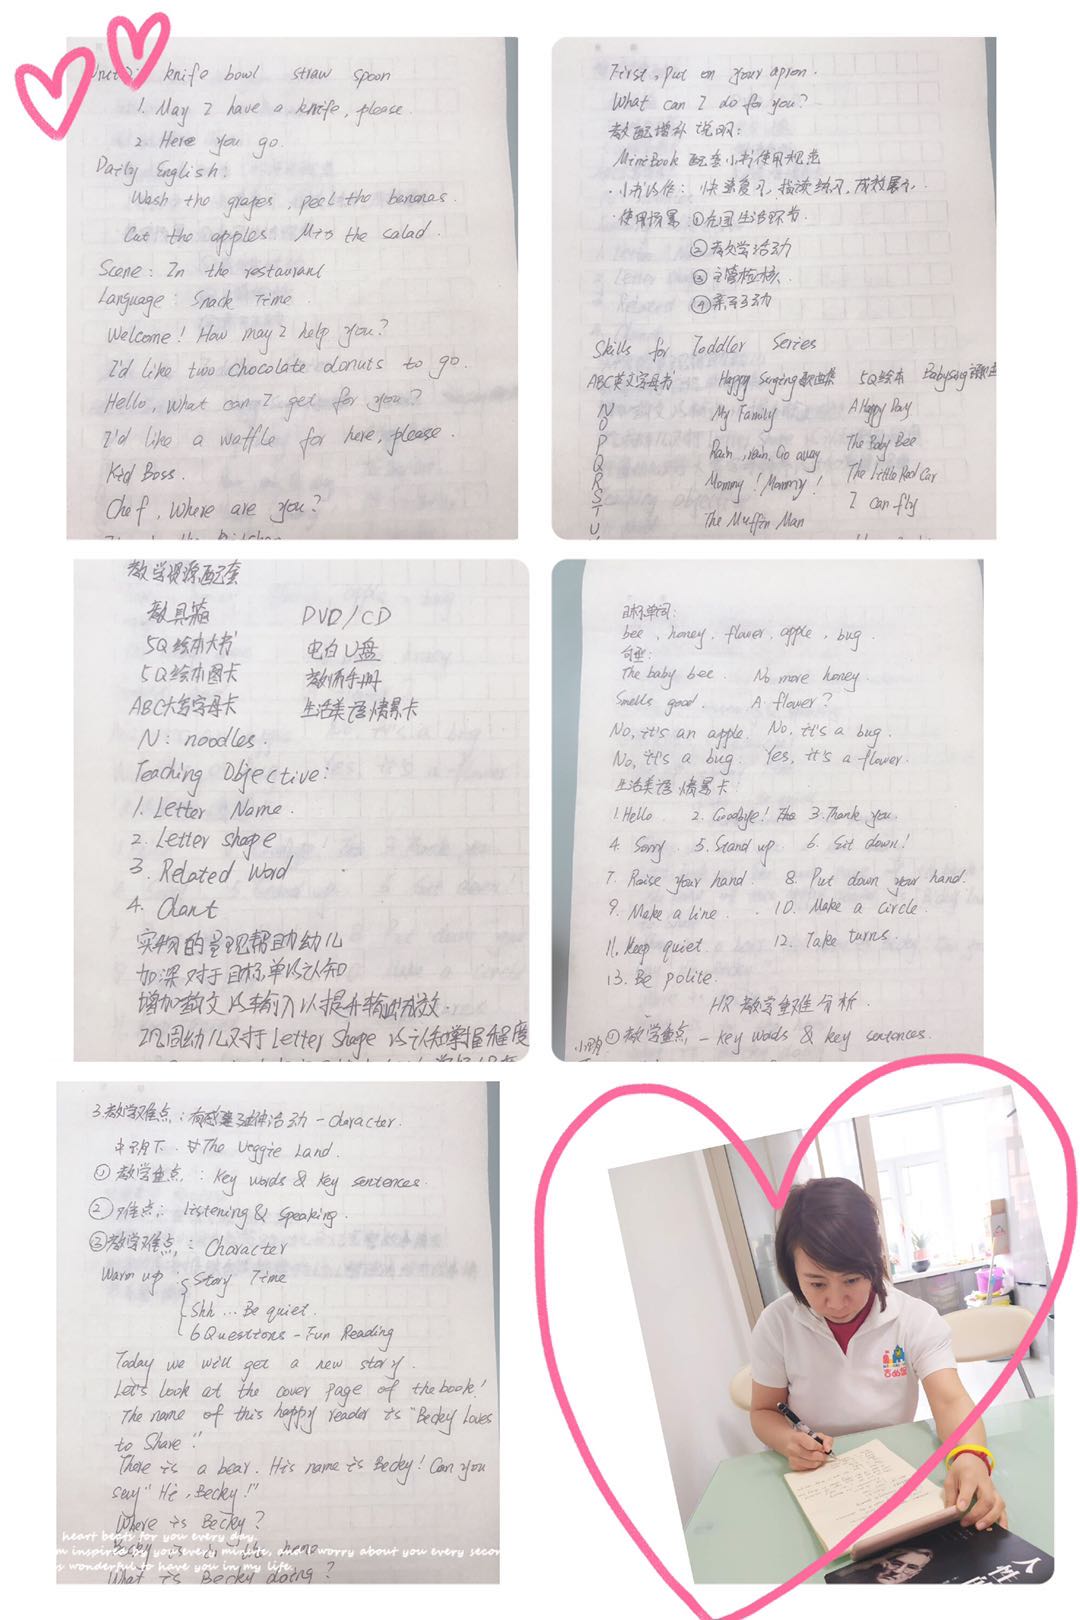 knife bowl straw spoon
1. May I have a knife, please.
2. Here you go.
Daily English:
Wash the grapes, peel the bananas.
Cut the apples Mix the salad.
Scene: In the restaurant
Language: Snack Time.
Welcome! How may I help you?
I'd like two chocolate donuts to go.
Hello, What can I get for you?
I'd like a waffle for here, please.
Kid Boss.
Chef, Where are you?
First, put on your apron.
What can I do for you?
教配增补说明:
MiniBook 配套小书使用规范
·小书的作: 快速复习, 指读练习, 成效展示.
·使用场景: ①在园生活环节.
②教学活动
③主管检核.
④亲子互动
Skills for Toddler Series
ABC英文字母书 Happy Singing歌曲集 5Q绘本 Babysing
N My Family A Happy Day
O
P Rain, rain, Go away The Baby Bee
Q
R Mommy! Mommy! The Little Red Car
S I can fly
T The Muffin Man
U
教学资源配套
教具箱 DVD/CD
5Q绘本大书 电白U盘
5Q绘本图卡 教师手册
ABC大写字母卡 生活美语情景卡
N: noodles.
Teaching Objective:
1. Letter Name.
2. Letter shape
3. Related Word
4. Chant
实物的呈现帮助幼儿
加深对于目标单的认知
增加教文的输入以提升输出成效.
巩固幼儿对于Letter Shape的认知掌握程度
目标单词:
bee, honey, flower, apple, bug.
句型:
The baby bee. No more honey.
Smells good. A flower?
No, it's an apple. No, it's a bug.
No, it's a bug. Yes, it's a flower.
生活美语情景卡:
1. Hello. 2. Goodbye! 3. Thank you.
4. Sorry. 5. Stand up. 6. Sit down!
7. Raise your hand. 8. Put down your hand.
9. Make a line. 10. Make a circle.
11. Keep quiet. 12. Take turns.
13. Be polite.
HR教学重难分析.
①教学重点 - Key words & key sentences.
3教学难点: 延伸活动 - Character.
The Veggie Land.
①教学重点: Key words & key sentences.
②难点: Listening & Speaking.
③教学难点: Character
Warm up: Story Time
Shh ... Be quiet.
6 Questions - Fun Reading
Today we will get a new story.
Let's look at the cover page of the book!
The name of this happy reader is "Becky Loves
to Share".
There is a bear. His name is Becky! Can you
say "Hi, Becky!"
Where is Becky?
Becky is in the
What is Becky doing?
heart beats for you every day,
m inspired by you every minute, and I worry about you every secon
s wonderful to have you in my life.